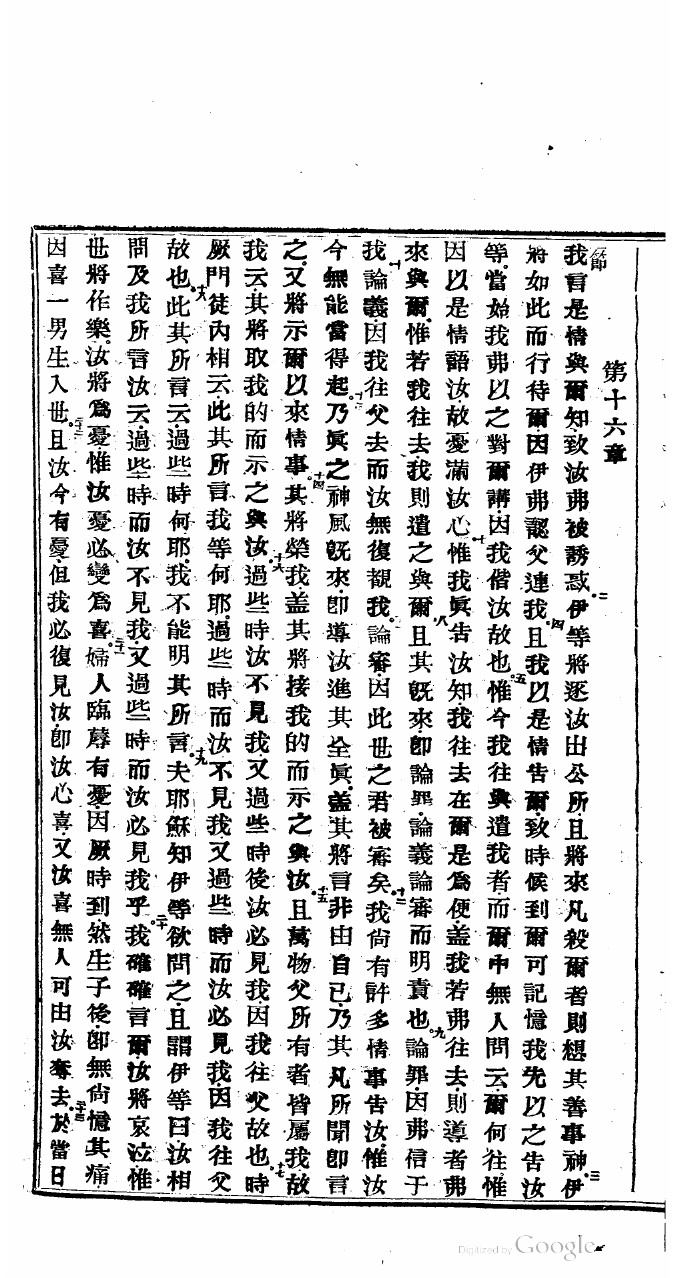 第十六章
節我言是情與爾知致汝弗被誘惑二伊等將逐汝出公所且將來凡殺爾者則想其善事神三伊
將如此而行待爾因伊弗認父連我四且我以是情告爾致時候到爾可記憶我先以之告汝
等當始我弗以之對爾講因我偕汝故也五惟今我往與遣我者而爾中無人問云爾何往六惟
因以是情語汝故憂滿汝心七惟我眞告汝知我往去在爾是爲便蓋我若弗往去則導者弗
來與爾惟若我往去我則遣之與爾八且其旣來卽論罪論義論審而明責也九論罪因弗信于
我十論義因我往父去而汝無復觀我十一論審因此世之君被審矣十二我尙有許多情事告汝惟汝
今無能當得起十三乃眞之神風旣來卽導汝進其全眞蓋其將言非由自己乃其凡所聞卽言
之又將示爾以來情事十四其將榮我蓋其將接我的而示之與汝十五且萬物父所有者皆屬我故
我云其將取我的而示之與汝十六過些時汝不見我又過些時後汝必見我因我往父故也十七時
厥門徒內相云此其所言我等何耶過些時而汝不見我又過些時而汝必見我因我往父
故也十八此其所言云過些時何耶我不能明其所言十九夫耶穌知伊等欲問之且謂伊等曰汝相
問及我所言汝云過些時而汝不見我又過些時而汝必見我乎二十我確確言爾汝將哀泣惟
世將作樂汝將爲憂惟汝憂必變爲喜二十一婦人臨蓐有憂因厥時到然生子後卽無尙憶其痛
因喜一男生入世二十二且汝今有憂但我必復見汝卽汝心喜又汝喜無人可由汝奪去二十三於當日
Digitized by Google